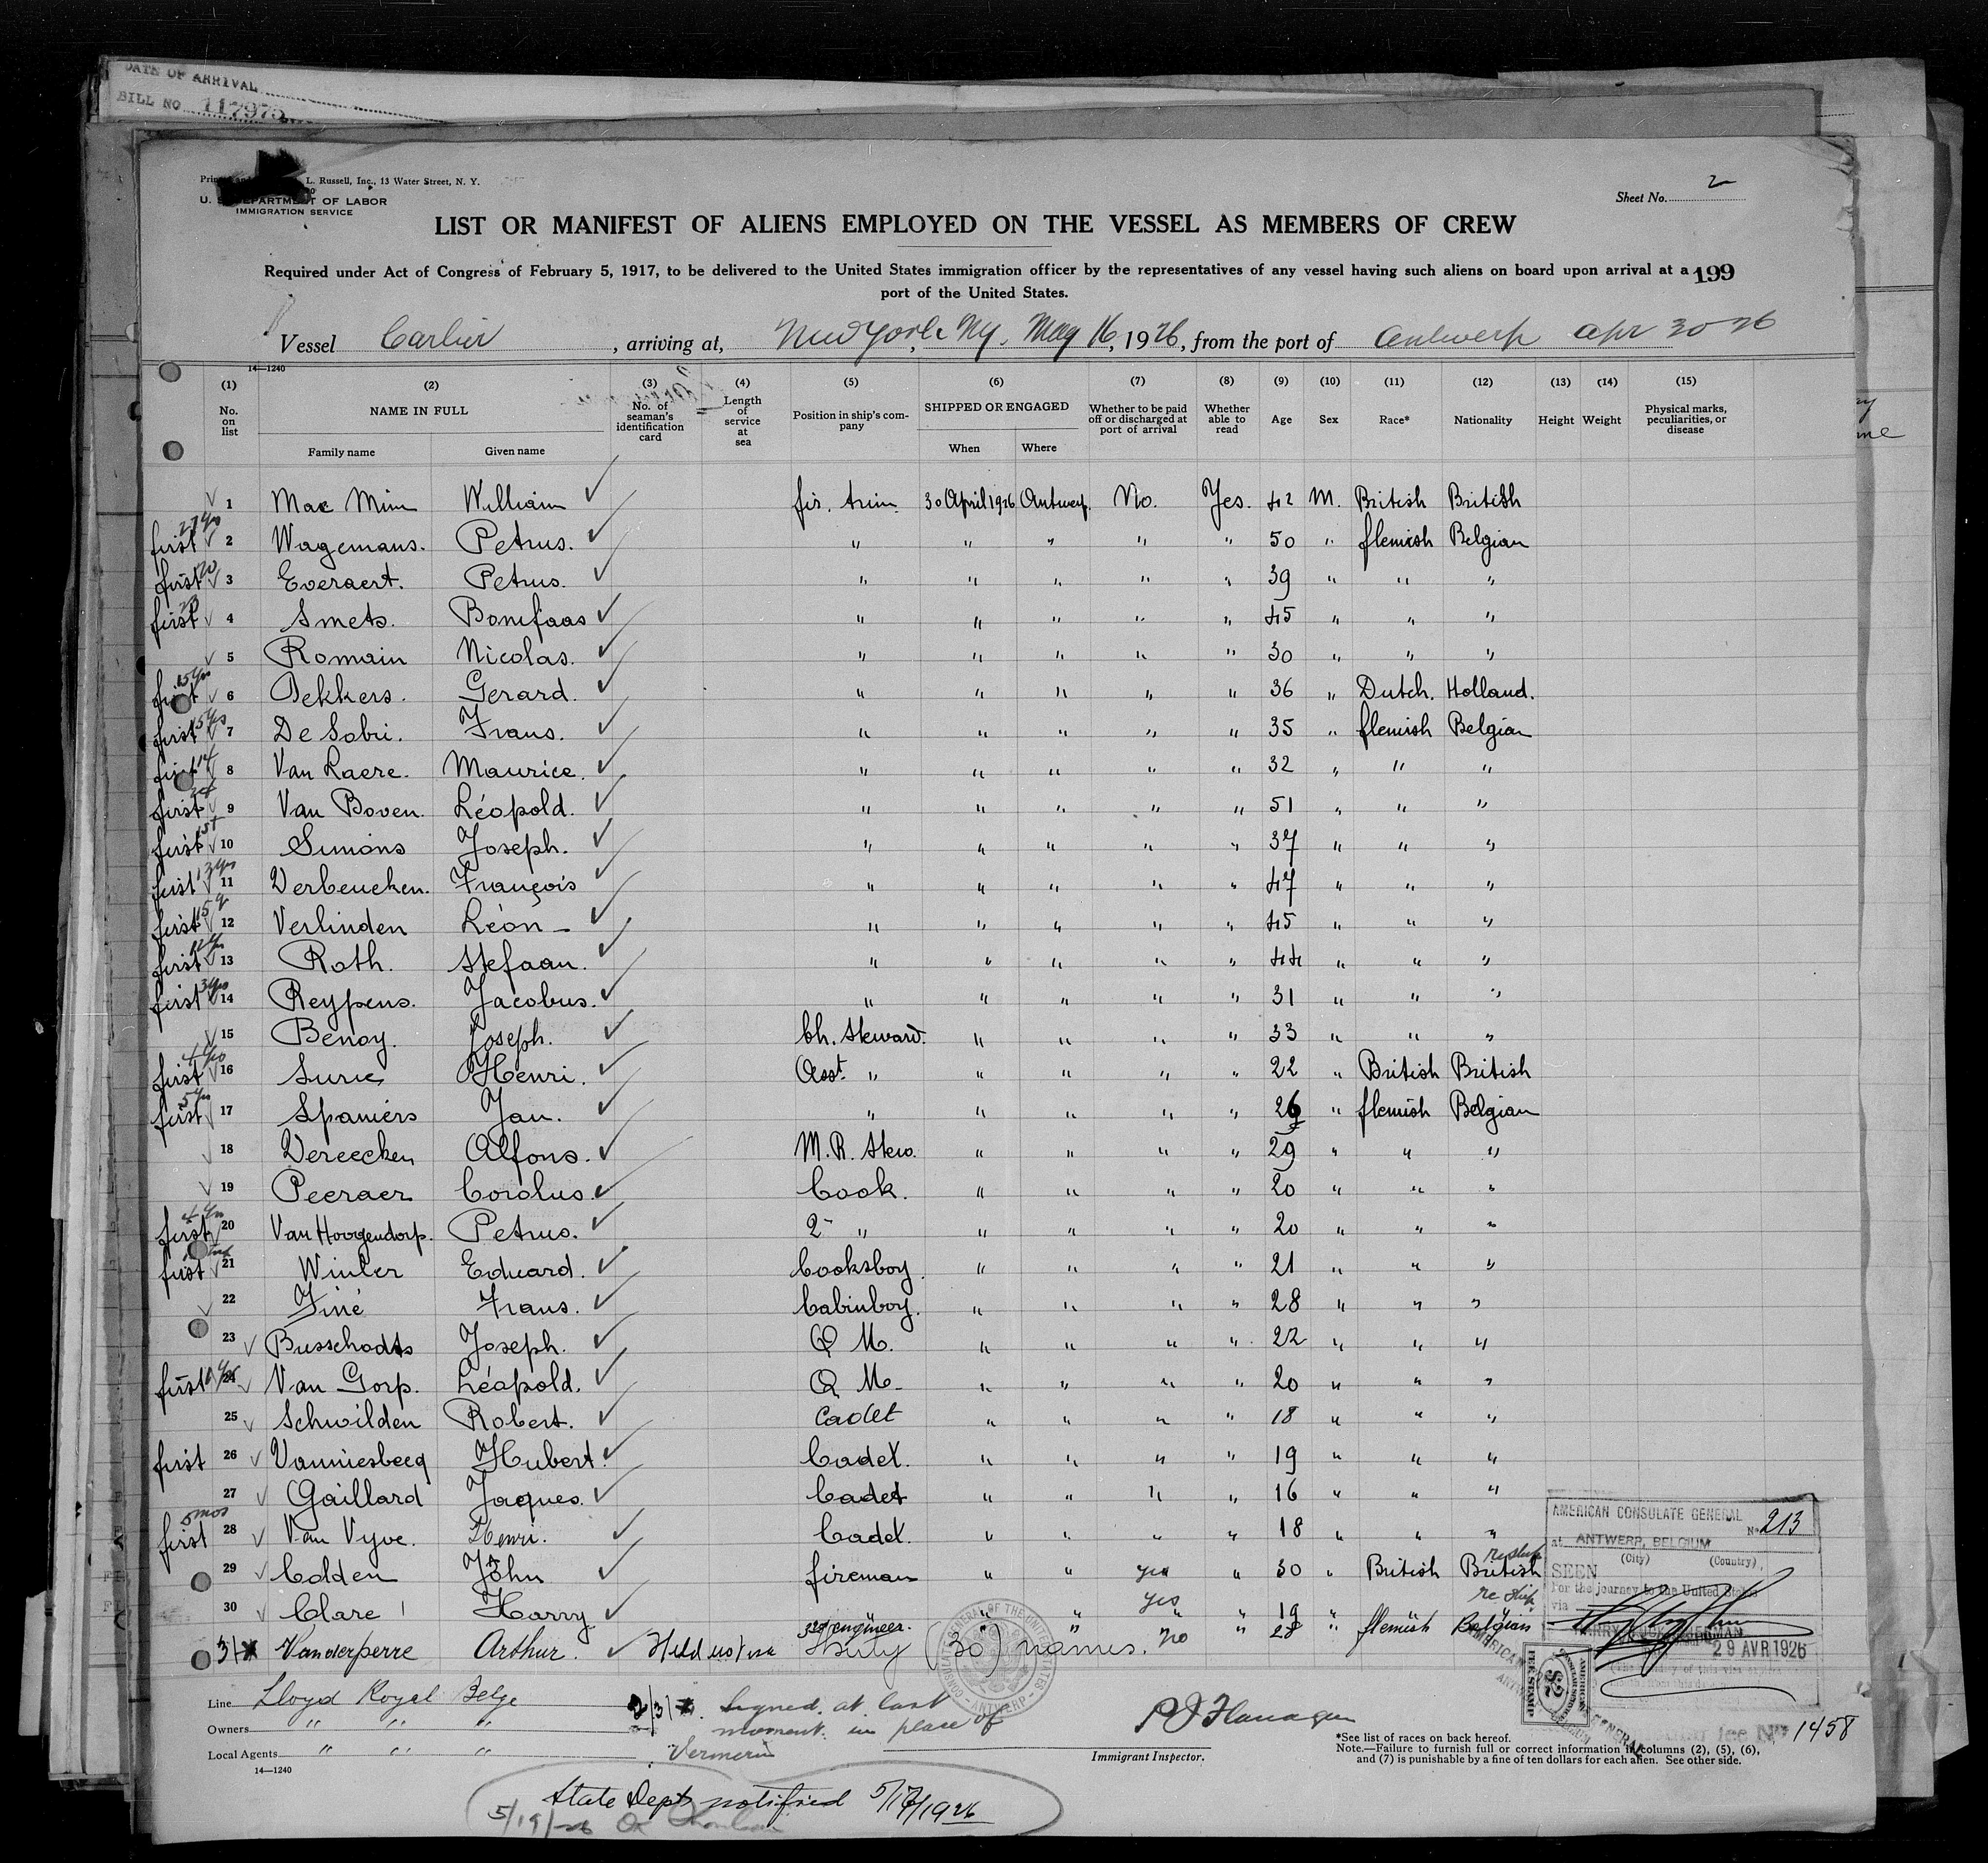 DATE OF ARRIVAL
BILL NO 117975
L. Russell, Inc., 13 Water Street, N. Y.
U. S. DEPARTMENT OF LABOR
IMMIGRATION SERVICE
Sheet No. 2
LIST OR MANIFEST OF ALIENS EMPLOYED ON THE VESSEL AS MEMBERS OF CREW
Required under Act of Congress of February 5, 1917, to be delivered to the United States immigration officer by the representatives of any vessel having such aliens on board upon arrival at a
port of the United States.
199
Vessel Carlier, arriving at, New York, Ny. May 16, 1926, from the port of Antwerp Apr 30 26
14—1240
(1) (2) (3) (4) (5) (6) (7) (8) (9) (10) (11) (12) (13) (14) (15)
No. on list NAME IN FULL Family name Given name No. of seaman's identification card Length of service at sea Position in ship's company SHIPPED OR ENGAGED When Where Whether to be paid off or discharged at port of arrival Whether able to read Age Sex Race* Nationality Height Weight Physical marks, peculiarities, or disease
1 Mac Mim William fir. trim. 30 April 1926 Antwerp. No. Yes. 42 M. British British
first 2 Wagemans. Petrus. " " " " " 50 " flemish Belgian
first 3 Everaert. Petrus. " " " " " 39 " " "
first 4 Smets. Bonifaas " " " " " 45 " " "
5 Romain Nicolas. " " " " " 30 " " "
first 6 Dekkers. Gerard. " " " " " 36 " Dutch. Holland.
first 7 De Sobri. Frans. " " " " " 35 " flemish Belgian
first 14 8 Van Laere. Maurice. " " " " " 32 " " "
first 9 Van Boven. Léopold. " " " " " 51 " " "
first 10 Simons Joseph. " " " " " 37 " " "
first 13 yrs 11 Verbeucken. François " " " " " 47 " " "
first 15 12 Verlinden Léon — " " " " " 45 " " "
first 13 Roth. Stefaan. " " " " " 44 " " "
first 3 yrs 14 Reypens. Jacobus. " " " " " 31 " " "
15 Benoy. Joseph. Ch. Steward. " " " " 33 " " "
first 4 yrs 16 Surie Henri. Asst. " " " " " 22 " British British
first 5 yrs 17 Spaniers Jan. " " " " " 26 " flemish Belgian
18 Vereecken Alfons. M. R. Stew. " " " " 29 " " "
19 Peeraer Corolus. Cook. " " " " 20 " " "
first 4 yrs 20 Van Hoogendorp. Petrus. 2- " " " " " 20 " " "
first 21 Winter Eduard. Cooksboy. " " " " 21 " " "
22 Finé Frans. Cabinboy. " " " " 28 " " "
23 Busschodts Joseph. Q M. " " " " 22 " " "
first 24 Van Gorp. Léopold. Q M. " " " " 20 " " "
25 Schwilden Robert. Cadet " " " " 18 " " "
first 26 Vanniesbecq Hubert. Cadet. " " " " 19 " " "
27 Gaillard Jaques. Cadet " " " " 16 " " "
first 5 mos 28 Van Vyve. Henri. Cadet. " " " " 18 " " "
29 Colden John fireman " " yes " 30 " British British reship
30 Clare Harry " " yes " 19 " " re ship
31 Vanderperre Arthur. 3rd engineer. no " 28 " flemish Belgian
Thirty (30) names.
AMERICAN CONSULATE GENERAL
No 213
at ANTWERP, BELGIUM
(City) (Country)
SEEN
For the journey to the United States
via
29 AVR 1926
CONSULATE GENERAL OF THE UNITED STATES ANTWERP
$2
Line Lloyd Royal Belge
Owners " " "
Local Agents " " "
14—1240
Signed at last
moment in place of
Vermeriu
P J Flanagan
Immigrant Inspector.
Nº 1458
*See list of races on back hereof.
Note.—Failure to furnish full or correct information in columns (2), (5), (6),
and (7) is punishable by a fine of ten dollars for each alien. See other side.
State Dept notified 5/17/1926
5/19/26 OK